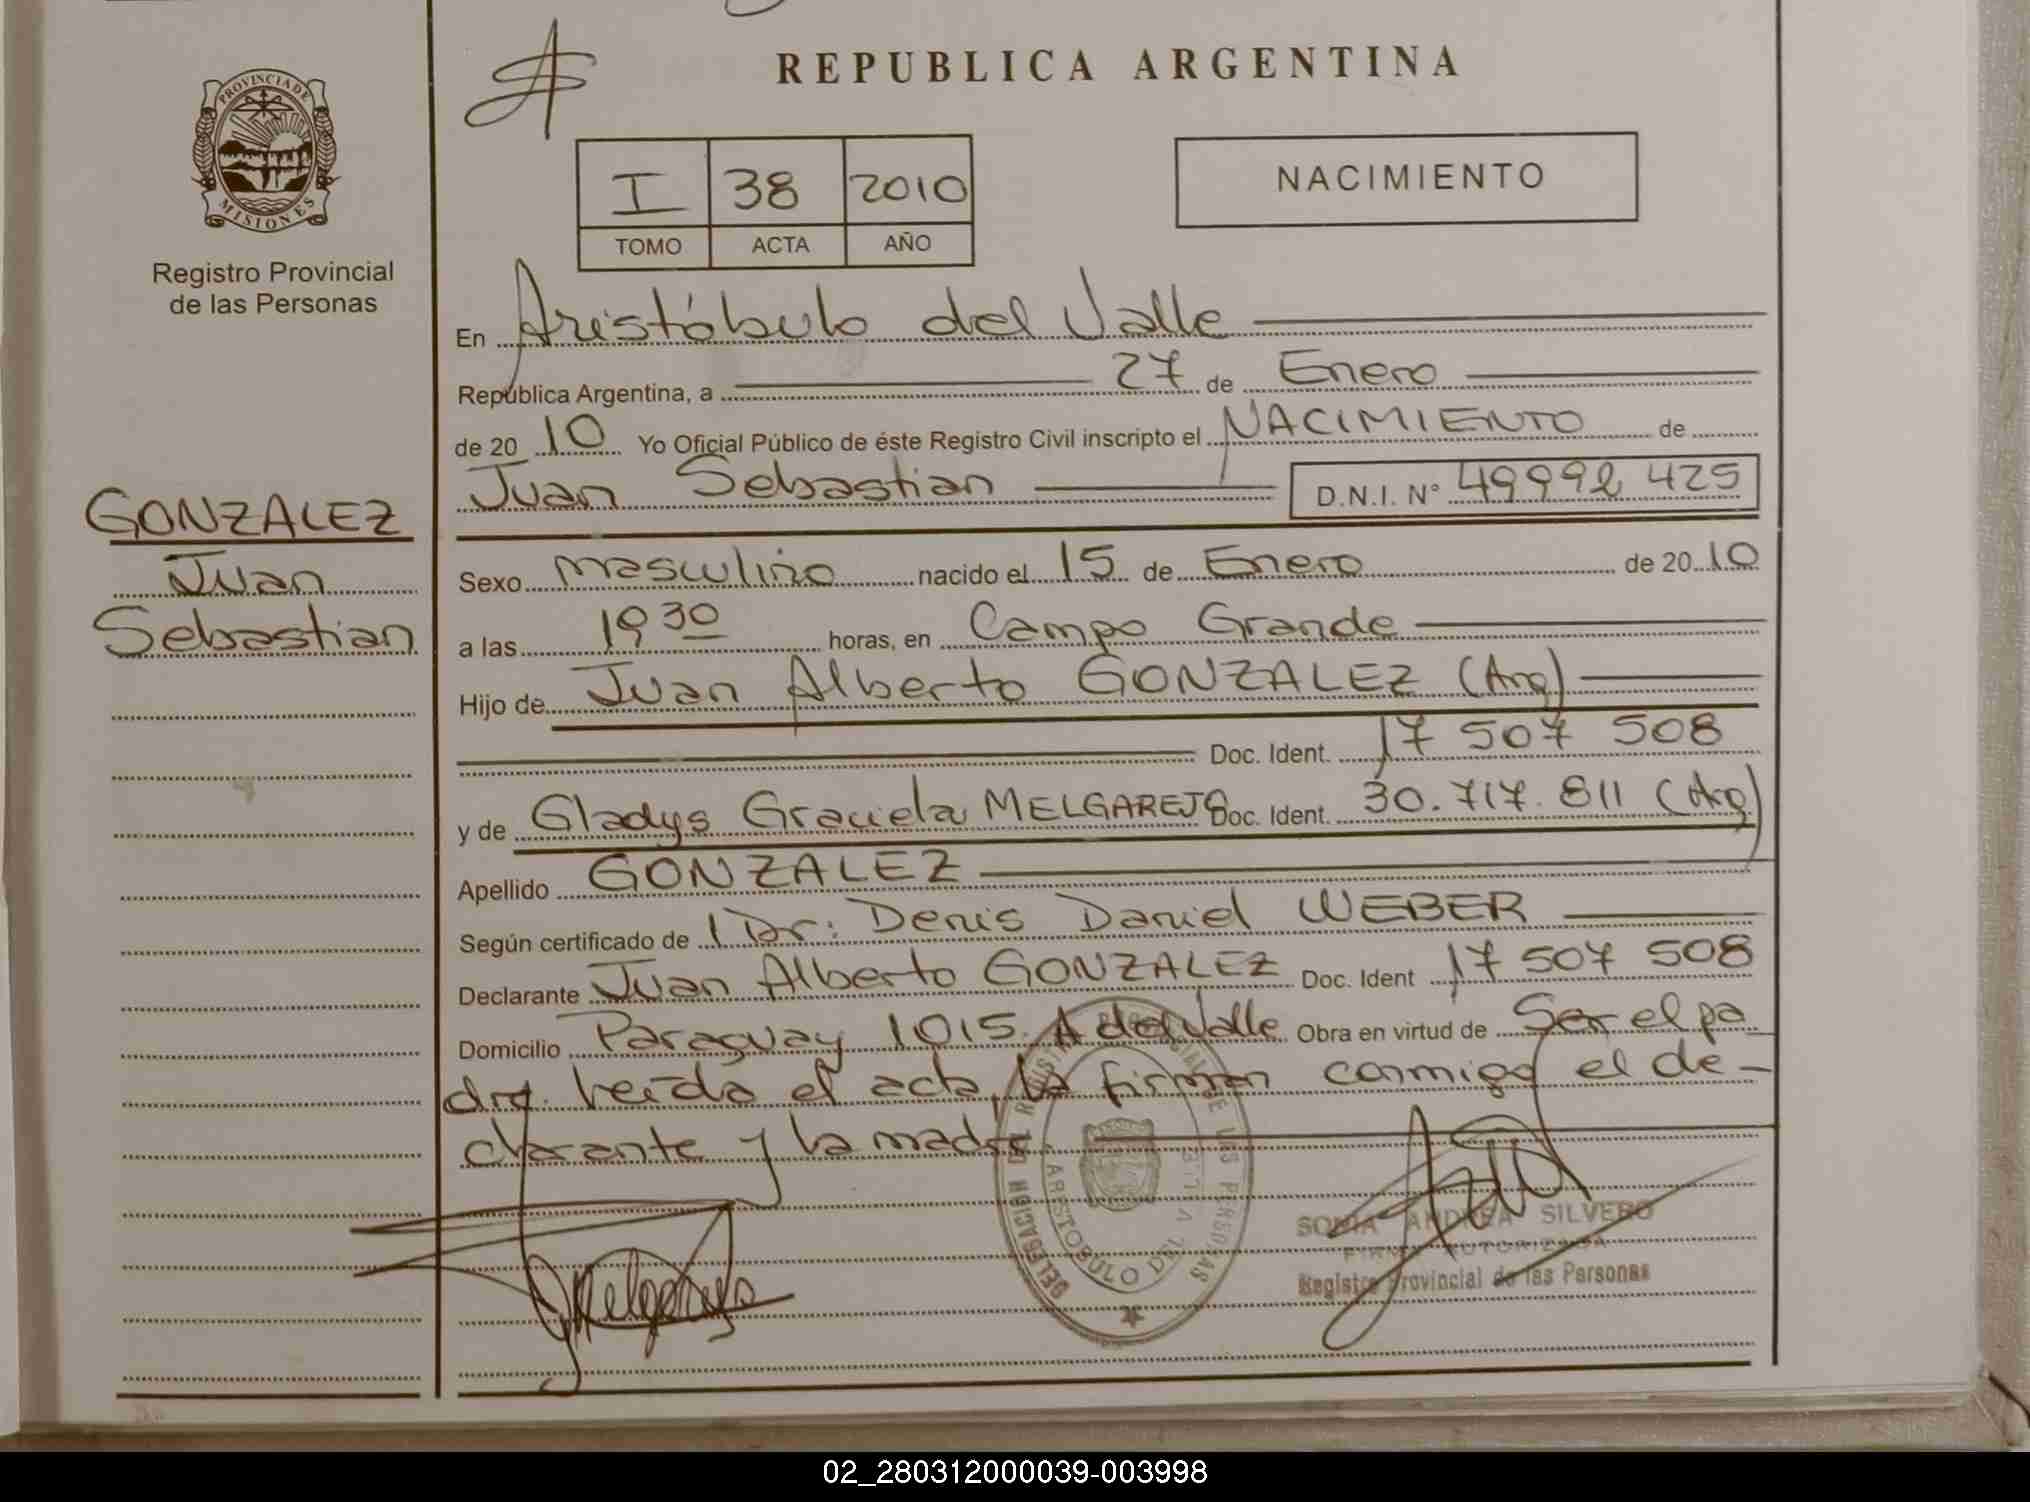 REPUBLICA ARGENTINA
PROVINCIA DE
MISIONES
Registro Provincial
de las Personas
I 38 2010
TOMO ACTA AÑO
NACIMIENTO
En Aristóbulo del Valle
República Argentina, a 27 de Enero
de 2010 Yo Oficial Público de éste Registro Civil inscripto el NACIMIENTO de
Juan Sebastian D.N.I. N° 49992 425
GONZALEZ
Juan
Sebastian
Sexo masculino nacido el 15 de Enero de 2010
a las 19 30 horas, en Campo Grande
Hijo de Juan Alberto GONZALEZ (Arg)
Doc. Ident. 17 507 508
y de Gladys Graciela MELGAREJO Doc. Ident. 30.717.811 (Arg)
Apellido GONZALEZ
Según certificado de Dr: Denis Daniel WEBER
Declarante Juan Alberto GONZALEZ Doc. Ident 17 507 508
Domicilio Paraguay 1015. A del Valle Obra en virtud de Ser el pa
dre. Leída el acta, la firman conmigo el de-
clarante y la madre.
DELEGACION DEL REGISTRO PROVINCIAL DE LAS PERSONAS
ARISTOBULO DEL VALLE
SONIA ANDREA SILVERO
FIRMA AUTORIZADA
Registro Provincial de las Personas
02_280312000039-003998